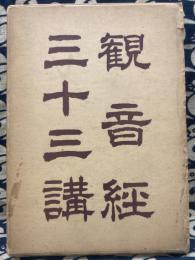 観音経
三十三講